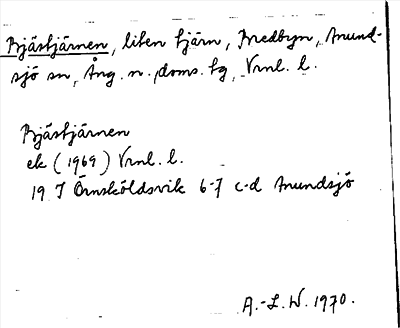 Bjästjärnen, liten tjärn, Bredbyn, Anund-
sjö sn, Ång. n., doms. tg, Vrnl. l.
Bjästjärnen
ek (1969) Vrnl. l.
19 J Örnsköldsvik 6-7 c-d Anundsjö
A.-L. W. 1970.